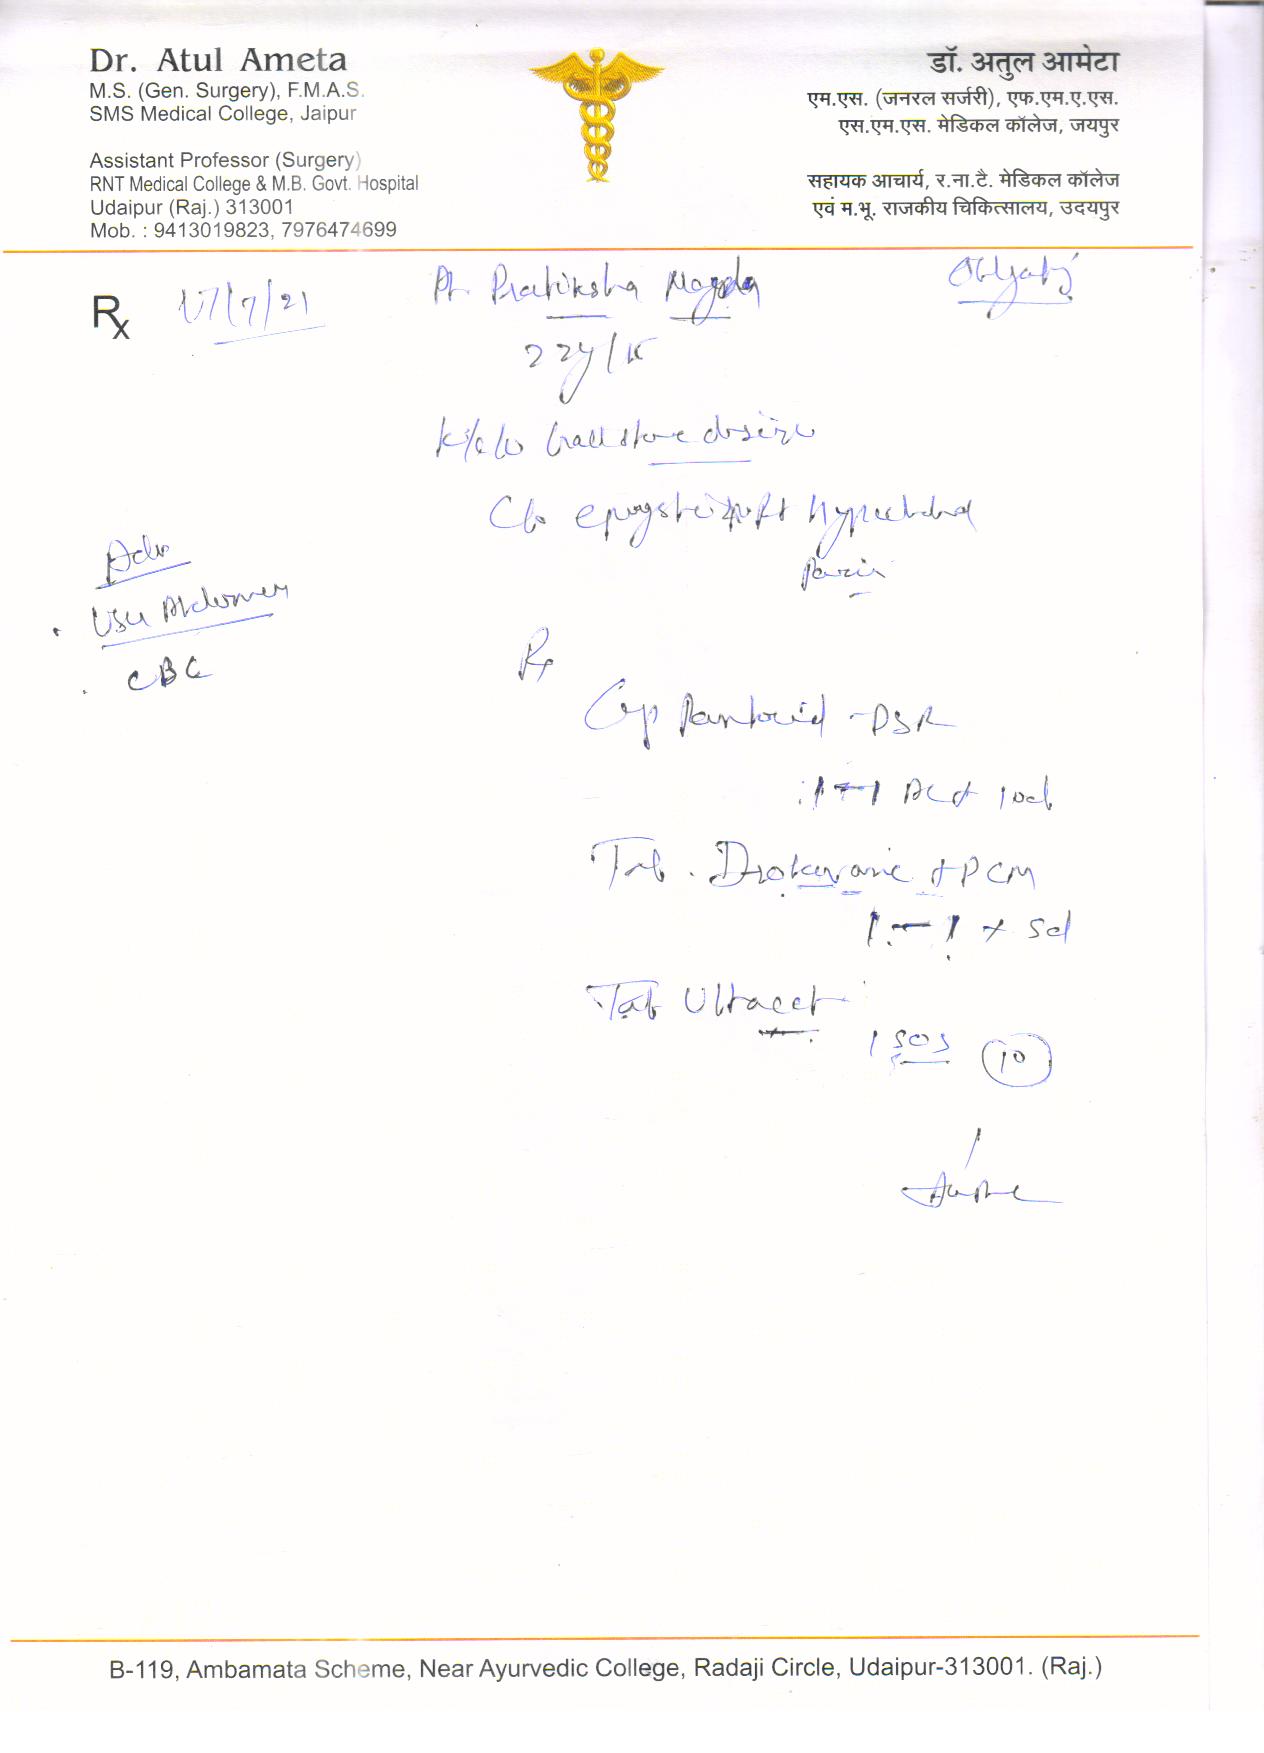 Dr. Atul Ameta
M.S. (Gen. Surgery), F.M.A.S.
SMS Medical College, Jaipur
Assistant Professor (Surgery)
RNT Medical College & M.B. Govt. Hospital
Udaipur (Raj.) 313001
Mob. : 9413019823, 7976474699
डॉ. अतुल आमेटा
एम.एस. (जनरल सर्जरी), एफ.एम.ए.एस.
एस.एम.एस. मेडिकल कॉलेज, जयपुर
सहायक आचार्य, र.ना.टै. मेडिकल कॉलेज
एवं म.भू. राजकीय चिकित्सालय, उदयपुर
Rx 17/7/21
Pt. Pratiksha
22y/F
K/c/o Gall stone
C/o
Pain
Adv
USG Abdomen
CBC
Rx
Cap -DSR
1-1 10d
Tab. Drotaverine + PCM
1-1 x 5d
Tab Ultracet
1 SOS 10
B-119, Ambamata Scheme, Near Ayurvedic College, Radaji Circle, Udaipur-313001. (Raj.)